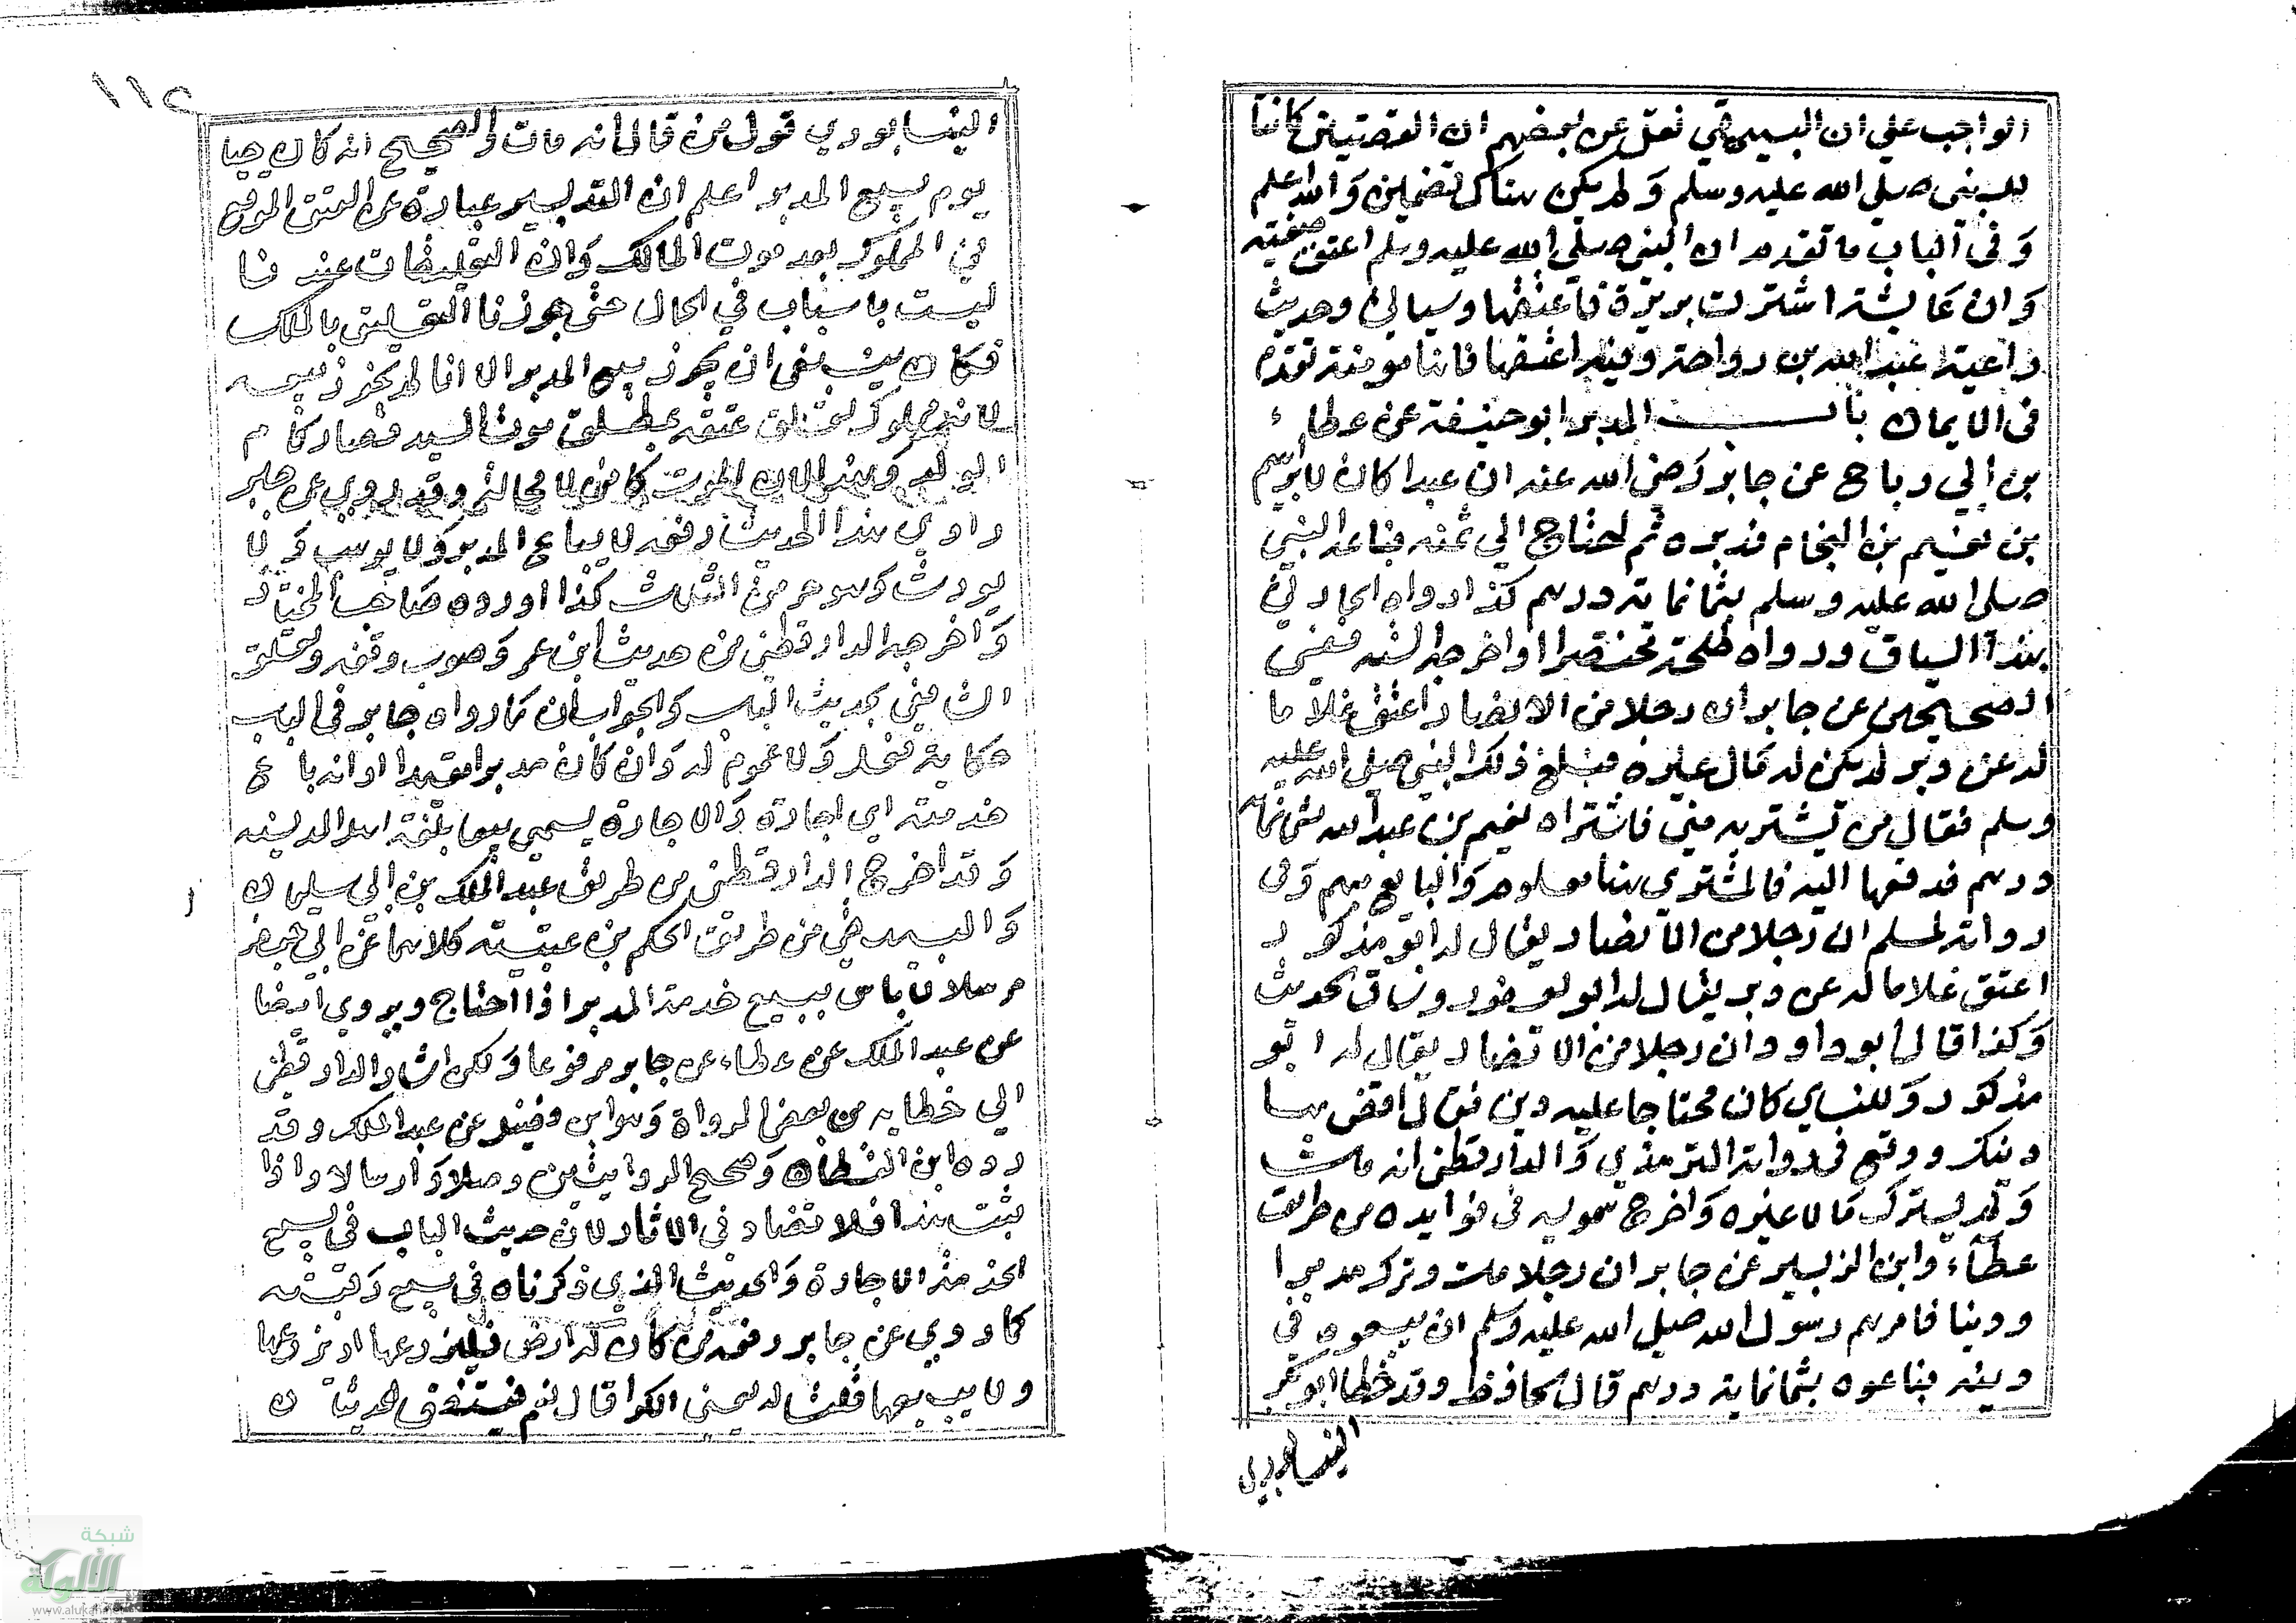 الواجب علي ان البيهقي نقل عن بعضهم ان القصتين كانتا
للنبي صلي الله عليه وسلم ولم يكن هناك تضمين والله اعلم
وفي الباب ما تقدم ان النبي صلي الله عليه وسلم اعتق صفيته
وان عايشة اشترت بريرة فاعتقها وسياتي وحديث
داعية عبد الله بن رواحة وفيه اعتقها فانها مومنة تقدم
في الايمان باب المدبر ابو حنيفة عن عطاء
بن ابي رباح عن جابر رضي الله عنه ان عبدا كان لابراهيم
بن نعيم بن النحام فدبره ثم احتاج الي ثمنه فباعه النبي
صلي الله عليه وسلم بثمانماية درهم كذا رواه الحارثي
بهذا السياق ورواه طلحة مختصرا واخرجه الستة ففي
الصحيحين عن جابر ان رجلا من الانصار اعتق غلاما
له عن دبر لم يكن له مال غيره فبلغ ذلك النبي صلي الله عليه
وسلم فقال من يشتريه مني فاشتراه نعيم بن عبد الله بثمانماية
درهم فدفعها اليه فالمشتري هنا معلوم والبايع مبهم وفي
رواية لمسلم ان رجلا من الانصار يقال له ابو مذكور
اعتق غلاما له عن دبر يقال له ابو يعقوب وساق الحديث
وكذا قال ابو داود ان رجلا من الانصار يقال له ابو
مذكور وللنساي كان محتاجا عليه دين فقال اقض بها
دينك ووقع في رواية الترمذي والدارقطني انه مات
ولم يترك مالا غيره واخرج سمويه في فوايده من طريق
عطاء وابن الزبير عن جابر ان رجلا مات وترك مدبرا
ودينا فامرهم رسول الله صلي الله عليه وسلم ان يبيعوه في
دينه فباعوه بثمانماية درهم قال الحافظ وقد خطا ابو بكر
النيسابوري
١١٢
النيسابوري قول من قال انه مات والصحيح انه كان حيا
يوم بيع المدبر اعلم ان التدبير عبارة عن العتق الموقع
في المملوك بعد موت المالك وان التعليقات عندنا
ليست باسباب في الحال حتي جوزنا التعليق بالملك
فكان ينبغي ان يجوز بيع المدبر الا انا لم نجوز بيعه
لانه مملوك تعلق عتقه بمطلق موت السيد فصار كام
الولد وهذا لان الموت كائن لا محالة وقد روي عن جابر
راوي هذا الحديث رفعه لا يباع المدبر ولا يوهب ولا
يورث وهو حر من الثلث كذا اورده صاحب المختار
واخرجه الدارقطني من حديث ابن عمر وصوب وقفه وتعلق
الشافعي بحديث الباب والجواب ان ما رواه جابر في الباب
حكاية فعل ولا عموم له وان كان مدبرا مقيدا او انه باع
خدمته اي اجارة والاجارة يسمي بيعا بلغة اهل المدينة
وقد اخرج الدارقطني من طريق عبد الملك بن ابي سليمان
والبيهقي من طريق الحكم بن عتيبة كلاهما عن ابي جعفر
مرسلا لا باس ببيع خدمة المدبر اذا احتاج ويروي ايضا
عن عبد الملك عن عطاء عن جابر مرفوعا ولكن اشار الدارقطني
الي خطايه من بعض الرواة وهو ابن فضيل عن عبد الملك وقد
رده ابن القطان وصحح الروايتين وصلا وارسالا واذا
ثبت هذا فلا تضاد في الاثار لان حديث الباب في بيع
الخدمة الاجارة والحديث الذي ذكرناه في بيع رقبته
كما روي عن جابر رفعه من كان له ارض فليزرعها او يزرعها
ولا يبيعها فقلت له يعني الكرا قال نعم فيتفق الحديثان
شبكة
الألوكة
www.alukah.net